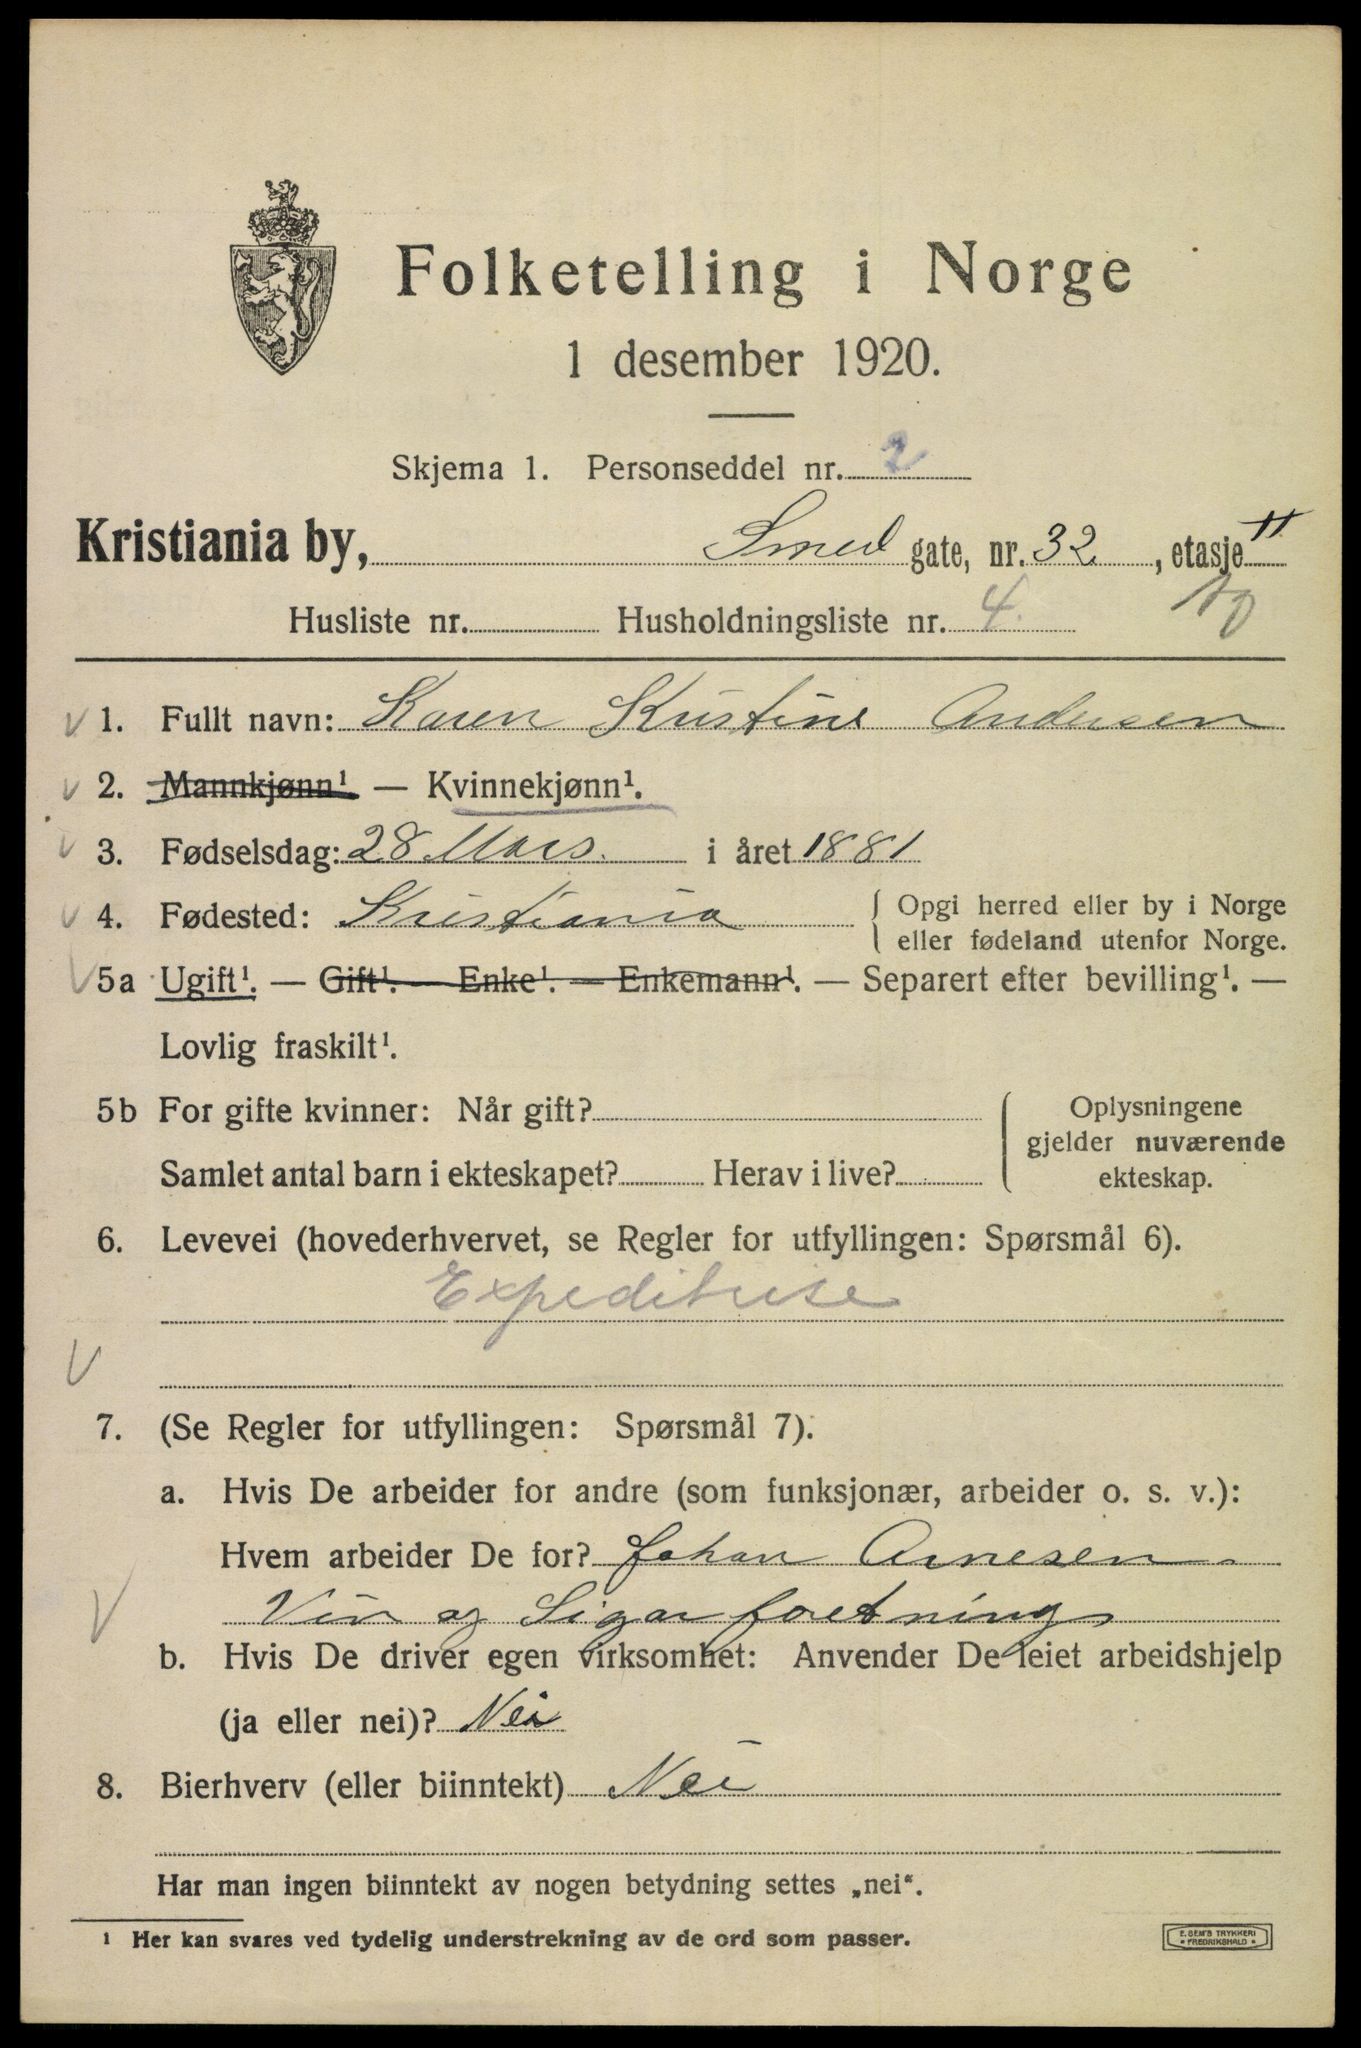 Folketelling i Norge
1 desember 1920.
Skjema 1. Personseddel nr. 2
Kristiania by, Smed gate, nr. 32, etasje II
Husliste nr. Husholdningsliste nr. 4.
V 1. Fullt navn: Karen Kristine Andersen
V 2. Mannkjønn¹ — Kvinnekjønn¹.
V 3. Fødselsdag: 28 Mars. i året 1881
V 4. Fødested: Kristiania { Opgi herred eller by i Norge
eller fødeland utenfor Norge.
V 5a Ugift¹. — Gift¹. — Enke¹. — Enkemann¹. — Separert efter bevilling¹. —
Lovlig fraskilt¹.
5b For gifte kvinner: Når gift? { Oplysningene
gjelder nuværende
Samlet antal barn i ekteskapet? Herav i live? ekteskap.
6. Levevei (hovederhvervet, se Regler for utfyllingen: Spørsmål 6).
Expeditrise
V
7. (Se Regler for utfyllingen: Spørsmål 7).
a. Hvis De arbeider for andre (som funksjonær, arbeider o. s. v.):
Hvem arbeider De for? Johan Arnesen
V Vin og Sigar foretning
b. Hvis De driver egen virksomhet: Anvender De leiet arbeidshjelp
(ja eller nei)? Nei
8. Bierhverv (eller biinntekt) Nei
Har man ingen biinntekt av nogen betydning settes „nei“.
¹ Her kan svares ved tydelig understrekning av de ord som passer.
E. SEM'S TRYKKERI
• FREDRIKSHALD •